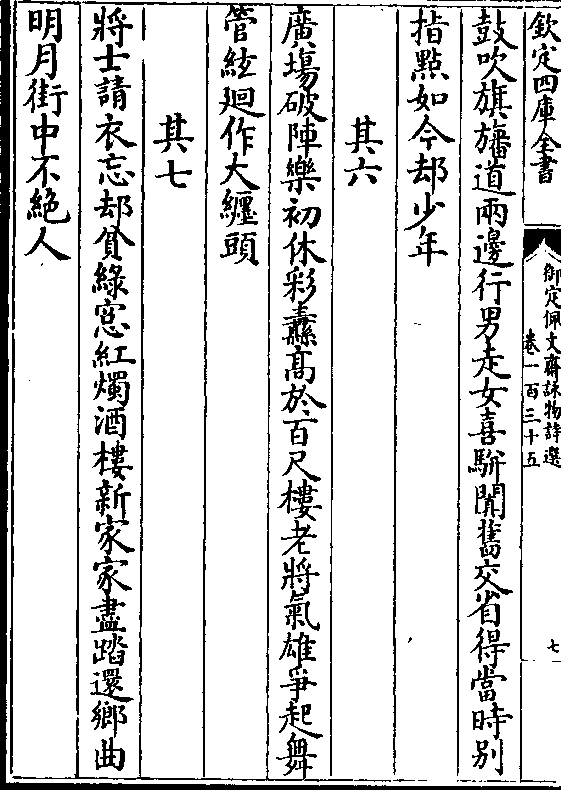 欽定四庫全書
御定佩文齋詠物詩選
卷一百三十五
七
鼓吹旗旛道兩邊行男走女喜駢闐舊交省得當時别
指點如今却少年
其六
廣場破陣樂初休彩纛髙於百尺樓老將氣雄爭起舞
管絃廻作大纒頭
其七
將士請衣忘却貧綠窓紅燭酒樓新家家盡踏還鄉曲
明月街中不絶人